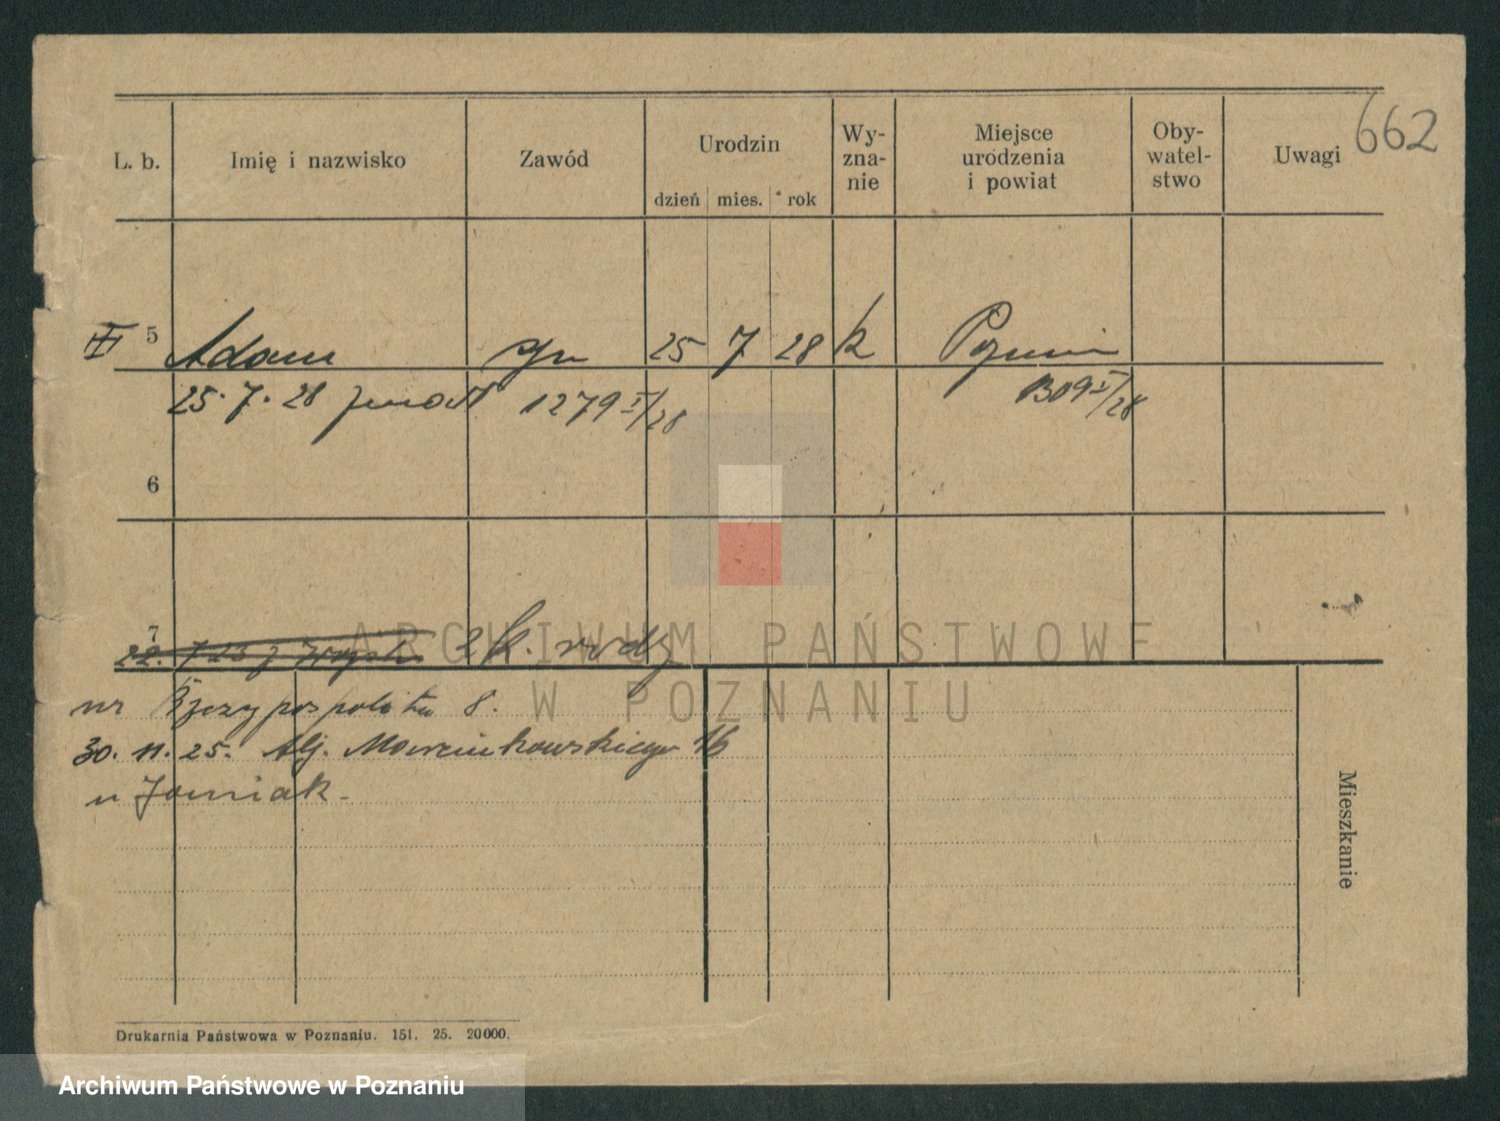 662
L. b. Imię i nazwisko Zawód Urodzin Wy- Miejsce Oby- Uwagi
zna- urodzenia watel-
nie i powiat stwo
dzień mies. rok
5 Adam syn 25 7 28 k Poznań
25. 7. 28 zmarł 1279 I/28 1309 I/28
6
7
22. k. rodz
nr Rzeczypospolita 8.
30. 11. 25. Alj. Marcinkowskiego 16
u Janiak.
Mieszkanie
Drukarnia Państwowa w Poznaniu. 151. 25. 20000.
ARCHIWUM PAŃSTWOWE
W POZNANIU
Archiwum Państwowe w Poznaniu